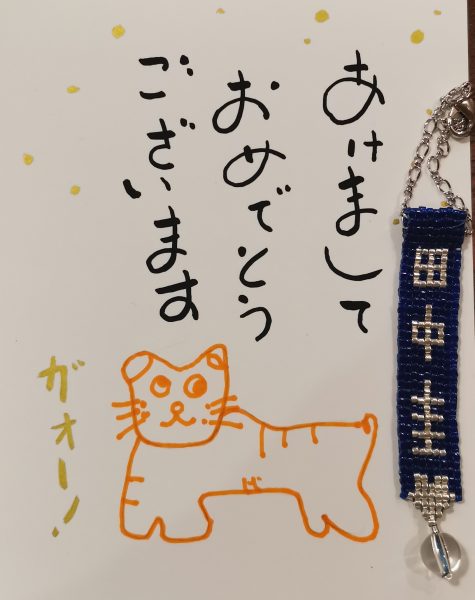 あけまして
おめでとう
ございます
ガオー!
田中圭